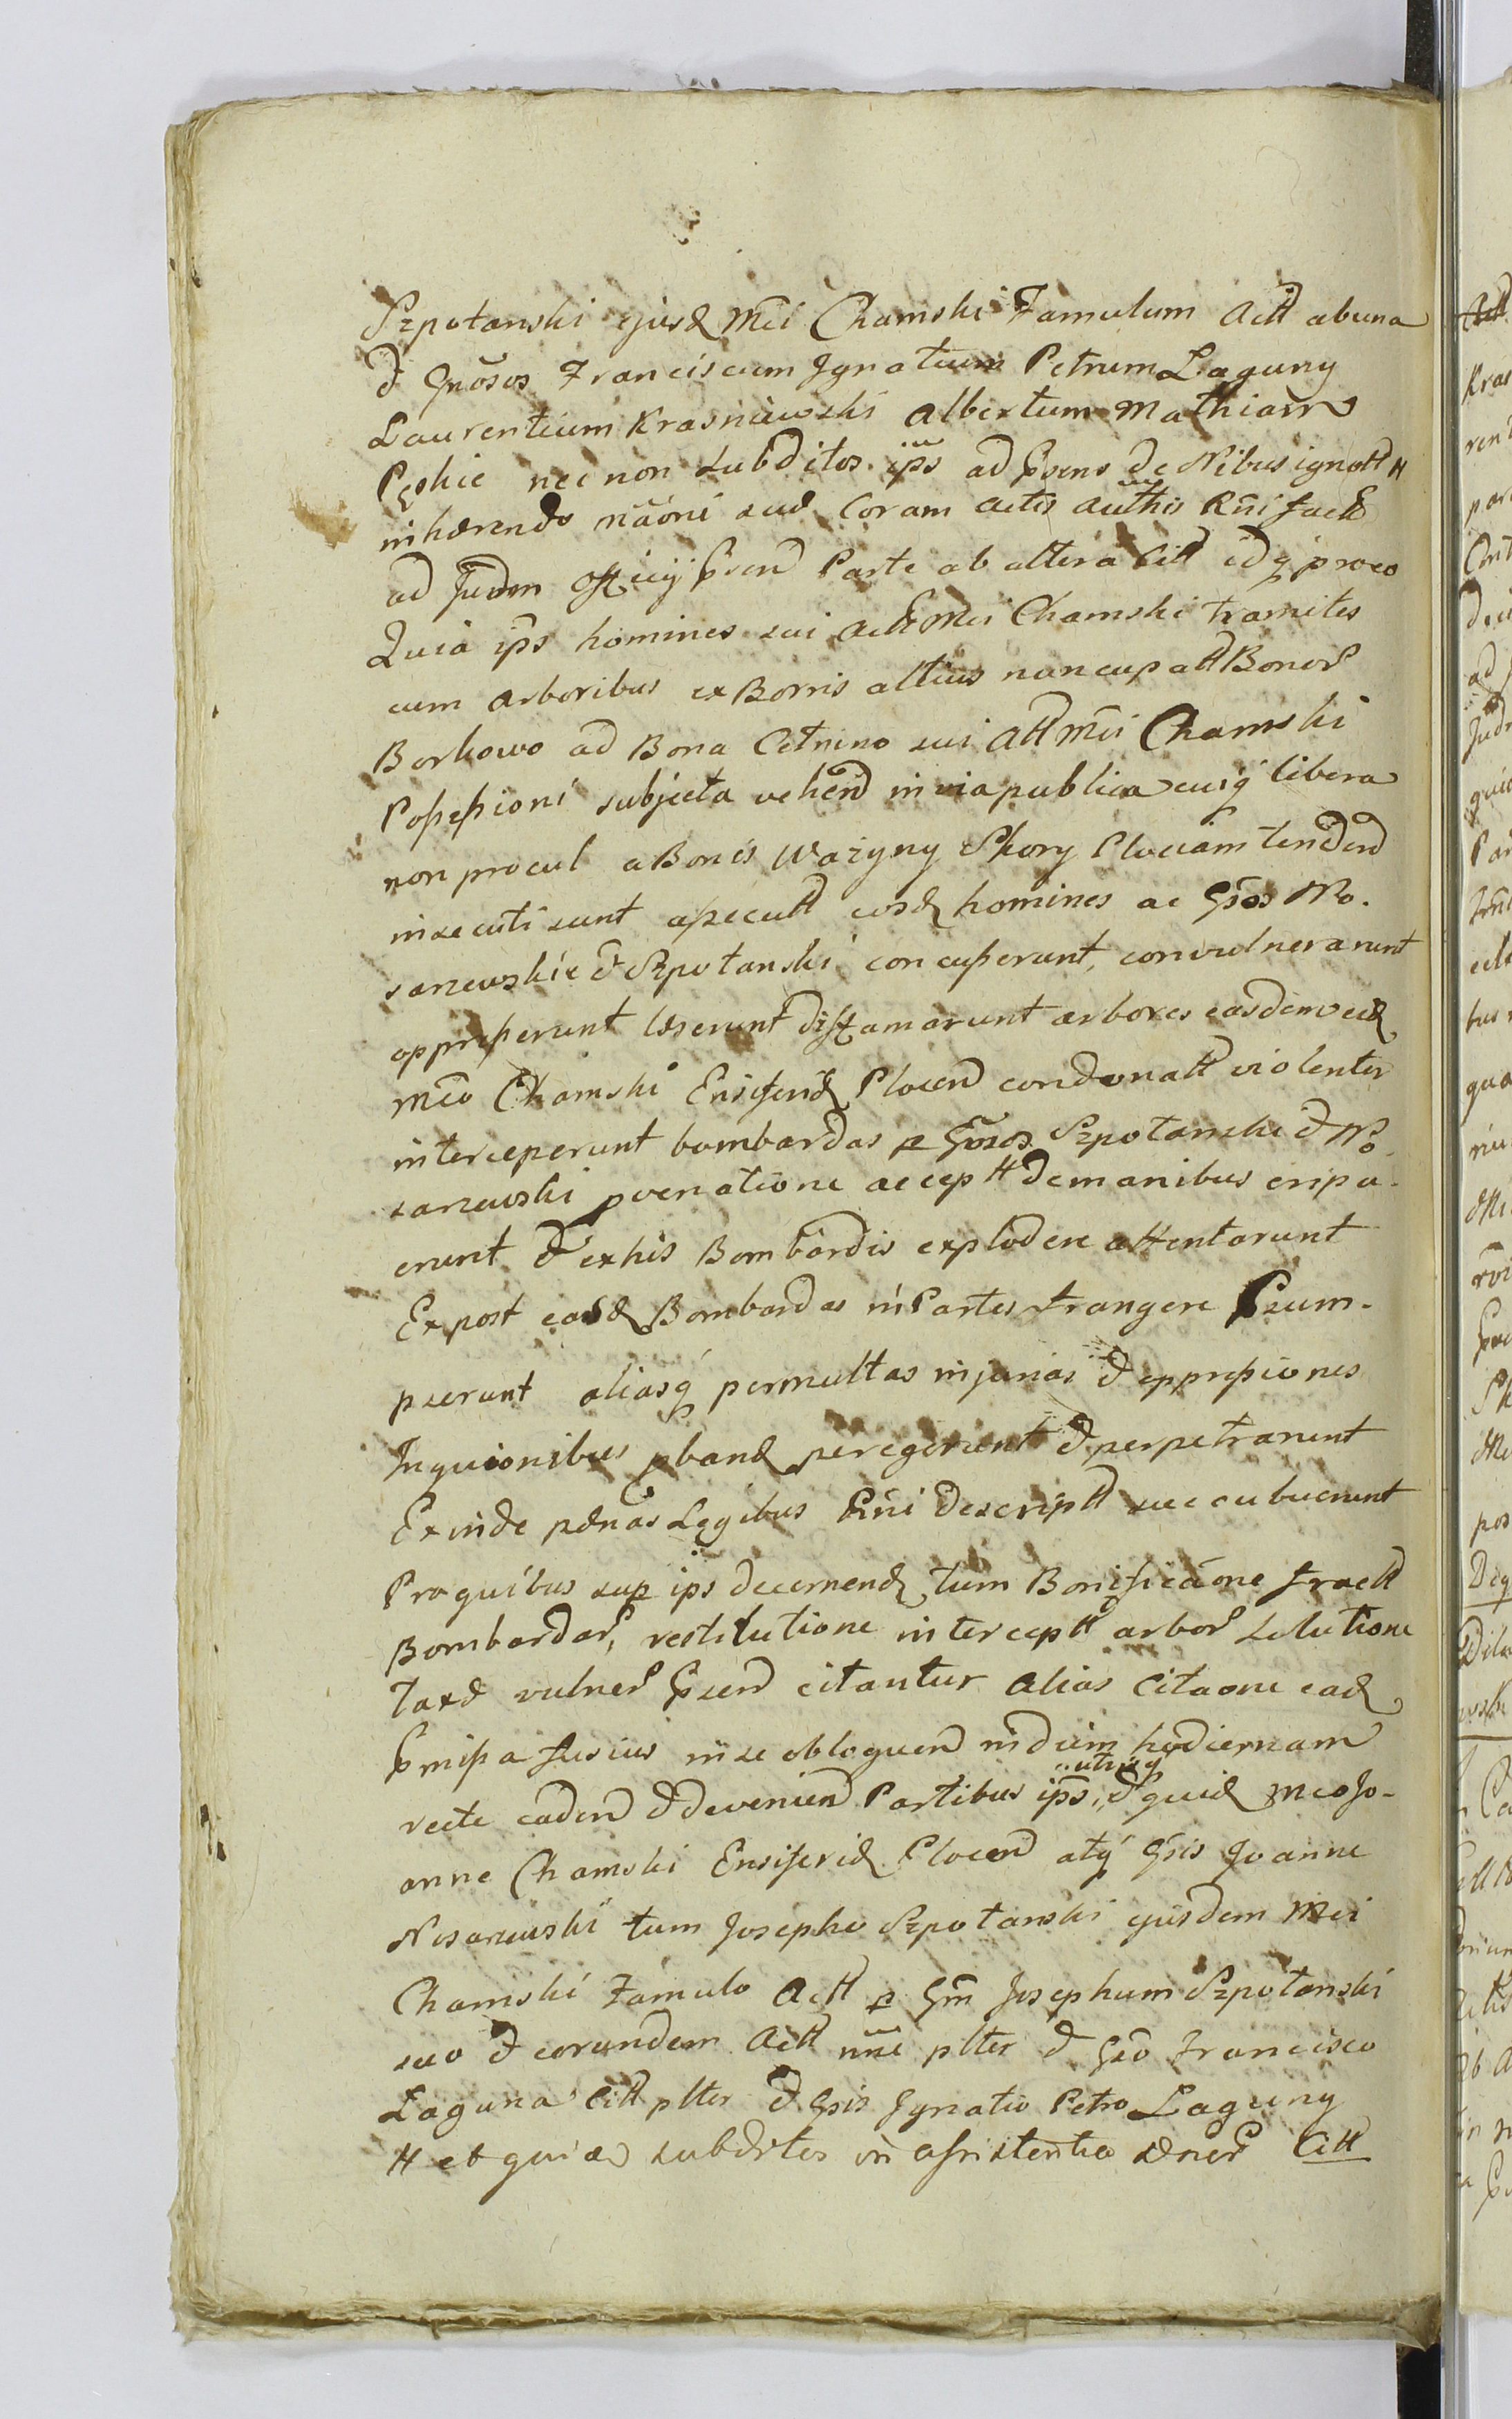 Szpotanski ejusd Mci Chamski Famulum Actt ab una
& Gnõsos Franciscum Ignatium Petrum Laguny
Laurentium Krasniewski Albertum Mathiam
Pęskie nec non subditos ip̃s ad Psens de Nibus ignott H
inhærendo nãoni suæ Coram Actis Authis Rñi fact
ad Judm Officij Psen Parte ab altera Citt idq̃ proeo
Quia ip̃s homines sui Actt Mci Chamski tramites
cum Arboribus ex Borris altius nuncupatt Bonor
Borkowo ad Bona Cetnino sui Att Mci Chamski
Possessioni subjecta vehen in via publica cuiq̃ libera
non procul a Bonis Ważyny Skory Plociam tenden
insecuti sunt assecutt eosd homines ac Gsos No-
sarzewskie & Szpotanski concusserunt, convulnerarunt
oppresserunt læserunt diffamarunt arbores easdem eid
Mco Chamski Ensiferid Plocen condonatt violenter
interceperunt bombardas p Gnosos Szpotanski & No
sarzewski p venatione accept de manibus eripu-
erunt & ex his Bombardis explodere attentarunt
Expost easd Bombardas in Partes frangere Psum-
pserunt aliasq̃ permultas injurias & oppressiones
Inquionibus pband peregerunt & perpetrarunt
Exinde pænas Legibus Rñi descriptt succubuerunt
Pro quibus sup ips decernend tum Bonificãone fractt
Bombardar, restitutione interceptt arbor solutione
taxæ vulner Psen citantur Alias Citaone ead
Pmissa fusius in se obloquen in diem hodiernam
recte caden & devenien Partibus ip̃s, utrisq̃ & quid Mco Jo-
anne Chamski Ensiferid Plocen atq̃ Gsis Joanne
Nosarzewski tum Josepho Szpotanski ejusdem Mci
Chamski Famulo Actt p Gm Josephum Szpotanski
suo & eorundem Actt nñe plter & Gso Francisco
Laguna Citt plter & Gsis Ignatio Petro Laguny
H et quid subditos in assistentia Citt